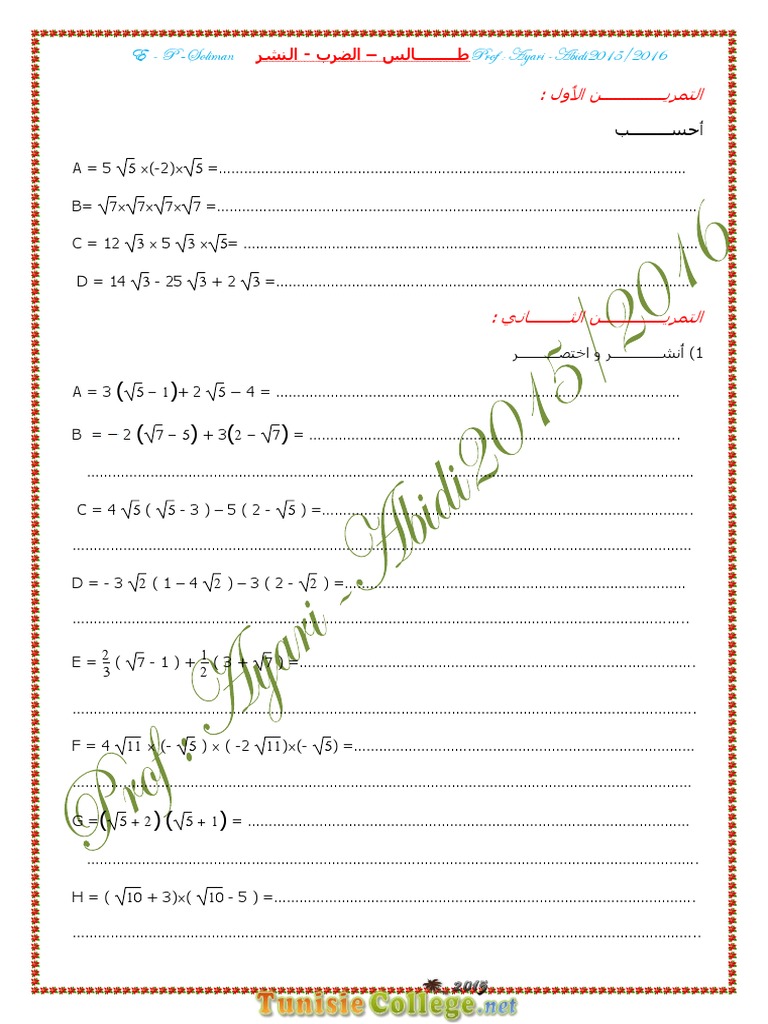 E - P - Soliman طـــــالس – الضرب - النشر Prof : Ayari - Abidi2015/2016
التمريـــــــــن الأول :
أحســـــــب
A = 5 √5 ×(-2)×√5 =..........................................................
B= √7×√7×√7×√7 =..........................................................
C = 12 √3 × 5 √3 ×√5= ..........................................................
D = 14 √3 - 25 √3 + 2 √3 =..........................................................
التمريـــــــــن الثـــــــاني :
1) أنشـــــــــر و اختصـــــــر
A = 3 (√5 − 1)+ 2 √5 − 4 = ..........................................................
B = − 2 (√7 − 5) + 3(2 − √7) = ..........................................................
..........................................................
C = 4 √5 ( √5 - 3 ) – 5 ( 2 - √5 ) =..........................................................
..........................................................
D = - 3 √2 ( 1 – 4 √2 ) – 3 ( 2 - √2 ) =..........................................................
..........................................................
E = 2/3 ( √7 - 1 ) + 1/2 ( 3 + √7 ) =..........................................................
..........................................................
F = 4 √11 × (- √5 ) × ( -2 √11)×(- √5) =..........................................................
..........................................................
G =(√5 + 2) (√5 + 1) = ..........................................................
..........................................................
H = ( √10 + 3)×( √10 - 5 ) =..........................................................
..........................................................
Prof : Ayari - Abidi2015/2016
2015
TunisieCollege.net